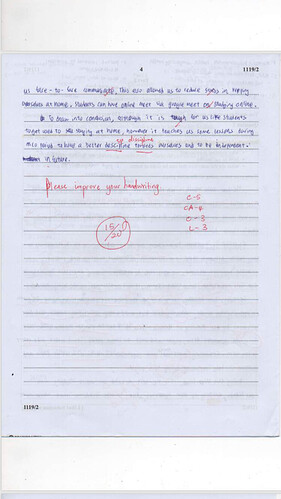 4
1119/2
us face-to-face communicate, this also allowed us to reduce stress in keeping
ourselves at home. Students can have online meet via google meet on studying online.
To draw into conclusion, although it is tough for us like students
to get used to the staying at home, however it teaches us some lessons during
this days to have a better discipline towards ourselves and to be independent
in future.
discipline
Please improve your handwriting
C-5
CA-4
O-3
L-3
15/20
1119/2